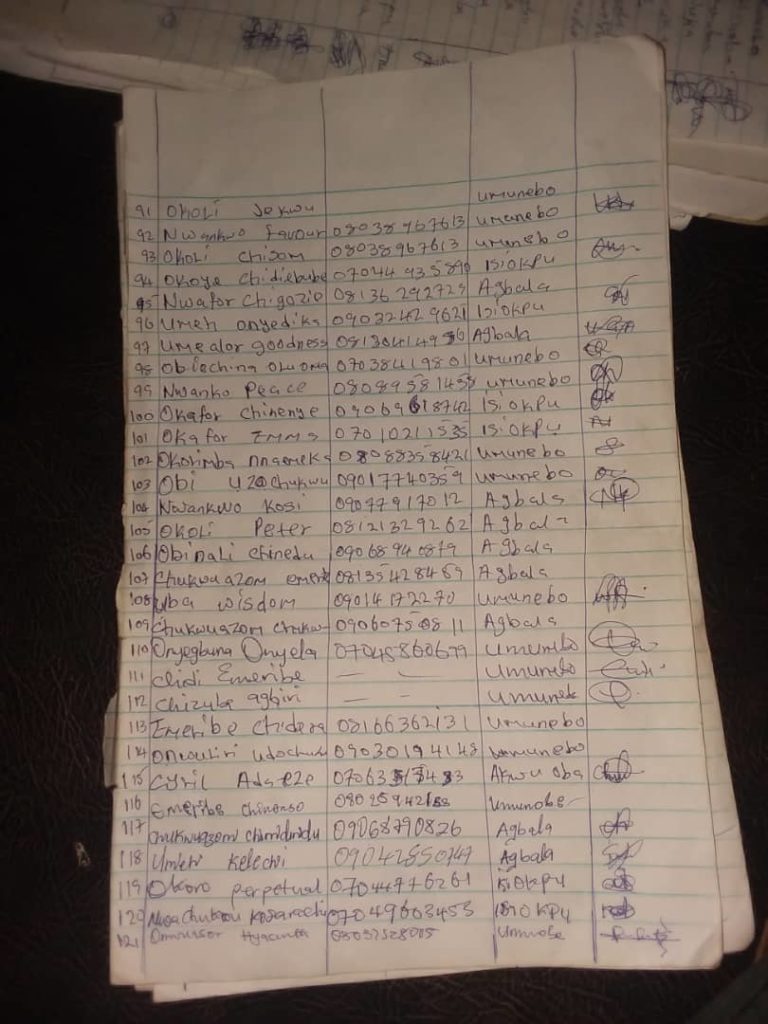 91 Okoli Jekwu Umunebo
92 Nwankwo favour 08038967613 Umunebo
93 Okoli Chisom 08038967613 Umunebo
94 Okoye Chidiebube 07044935890 Isiokpu
95 Nwafor Chigozie 08136292729 Agbala
96 Umeh Onyedika 09032429621 Isiokpu
97 Umealor goodness Agbala
98 07038419801 Umunebo
99 Nwanko Peace 08089581458 Umunebo
100 Okafor Chinenye 09069618742 Isiokpu
101 Okafor Emma 07010211535 Isiokpu
102 nnaemeka 08088358421 Umunebo
103 Obi Uzochukwu 09017740359 Umunebo
104 Nwankwo Kosi 09077917012 Agbala
105 Okoli Peter 08121329262 Agbala
106 Obinali Chinedu 09068940879 Agbala
107 Chukwuazom emeka 08135428469 Agbala
108 Uba wisdom 09014172270 Umunebo
109 Chukwuazom Chukwu 09060750811 Agbala
110 Onyegbuna Onyela 07045860679 Umunebo
111 Clidi Emeribe — — Umunebo
112 Chizuba agbiri — — Umuneb
113 Emeribe Chidera 08166362131 Umunebo
114 09030194148 Umunebo
115 Cyril Adaeze Akwu oba
116 Emeribe chinonso Umunobe
117 09068790826 Agbala
118 Umeh Kelechi 09042850747 Agbala
119 Okoro perpetual 07044776261 Isiokpu
120 07049603453 Isiokpu
121 Hyacinta